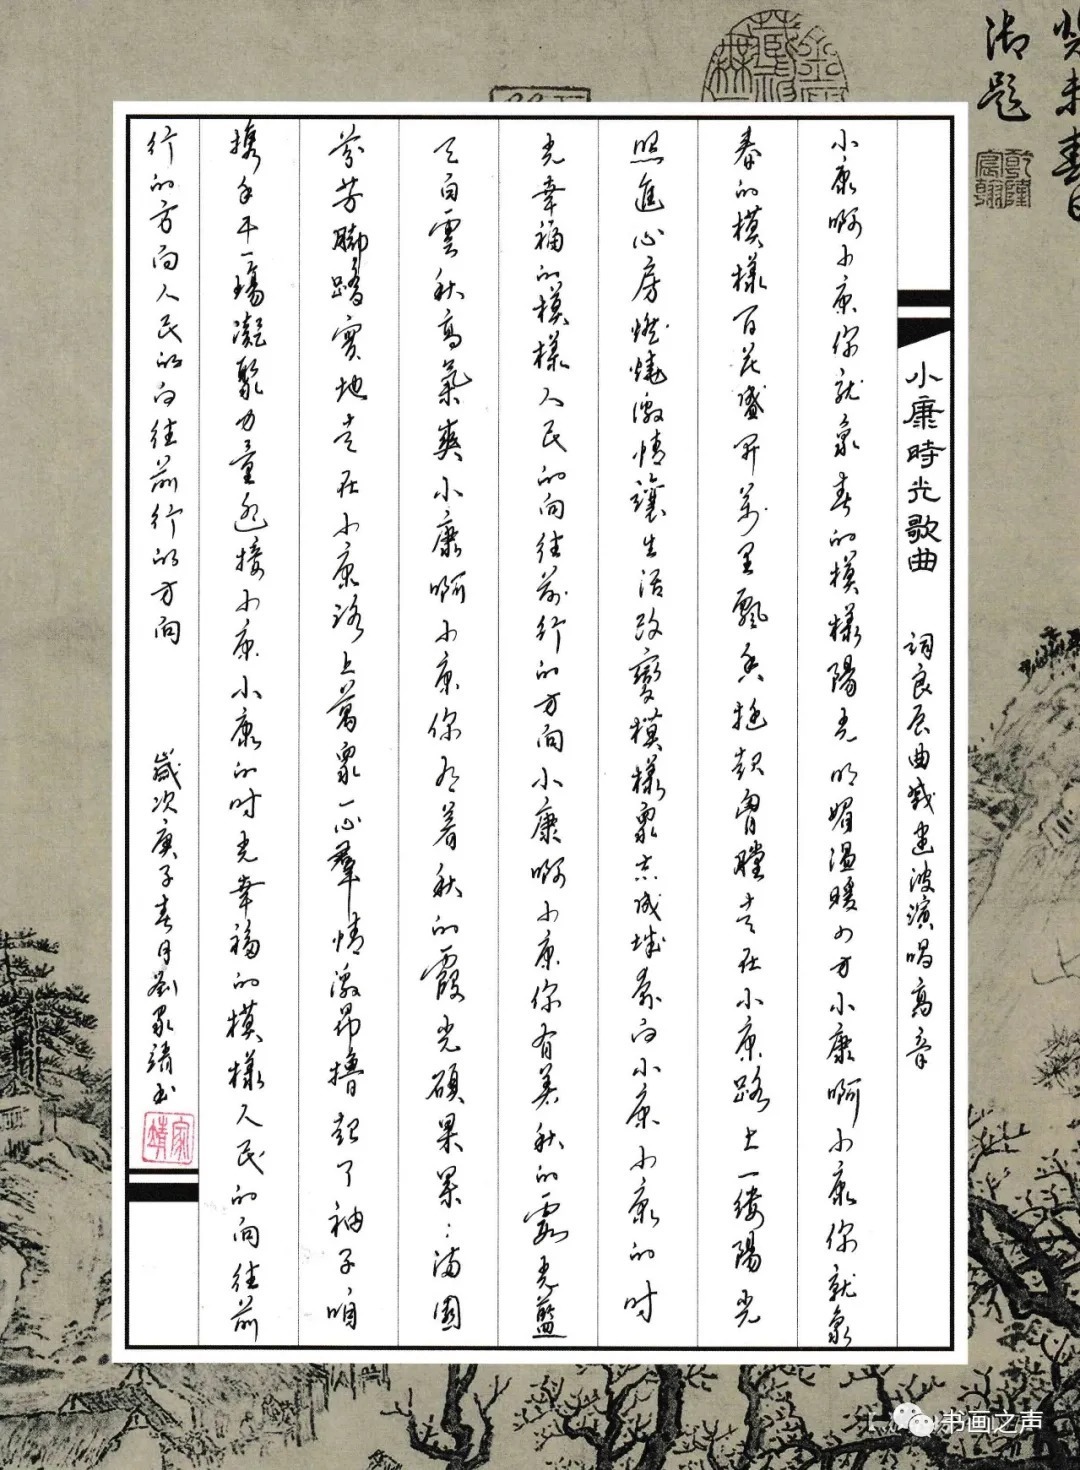 小康時光歌曲 詞良辰曲戴建波演唱高音
小康啊小康你就象春的模樣陽光明媚温暖四方小康啊小康你就象
春的模樣百花盛開萬里飄香挺起胸膛走在小康路上一缕陽光
照進心房燃燒激情讓生活改變模樣眾志成城奔向小康小康的时
光幸福的模樣人民的向往前行的方向小康啊小康你有美秋的霞光藍
天白雲秋高氣爽小康啊小康你有着秋的霞光碩果累：满園
芬芳脚踏實地走在小康路上萬眾一心羣情激昂擼起了袖子咱
攜手干一場凝聚力量迎接小康小康的时光幸福的模樣人民的向往前
行的方向人民的向往前行的方向 歲次庚子春月劉家靖书
家靖
御題
乾隆宸翰
书画之声